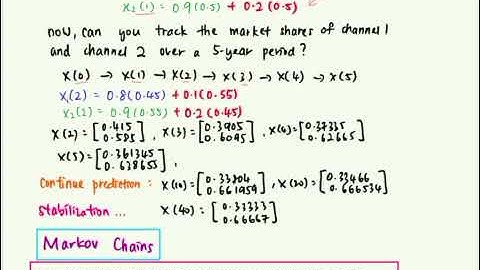 X₂(1) = 0.9(0.5) + 0.2(0.5)
now, can you track the market shares of channel 1
and channel 2 over a 5-year period?
X(0) → X(1) → X(2) → X(3) → X(4) → X(5)
X₁(2) = 0.8(0.45) + 0.1(0.55)
X₂(2) = 0.9(0.55) + 0.2(0.45)
X(2) = [0.415 0.585], X(3) = [0.3905 0.6095], X(4) = [0.37335 0.62665]
X(5) = [0.361345 0.638655],
Continue prediction : X(10) = [0.33804 0.661959], X(20) = [0.33466 0.666534]
Stabilization ... X(40) = [0.33333 0.66667]
Markov Chains